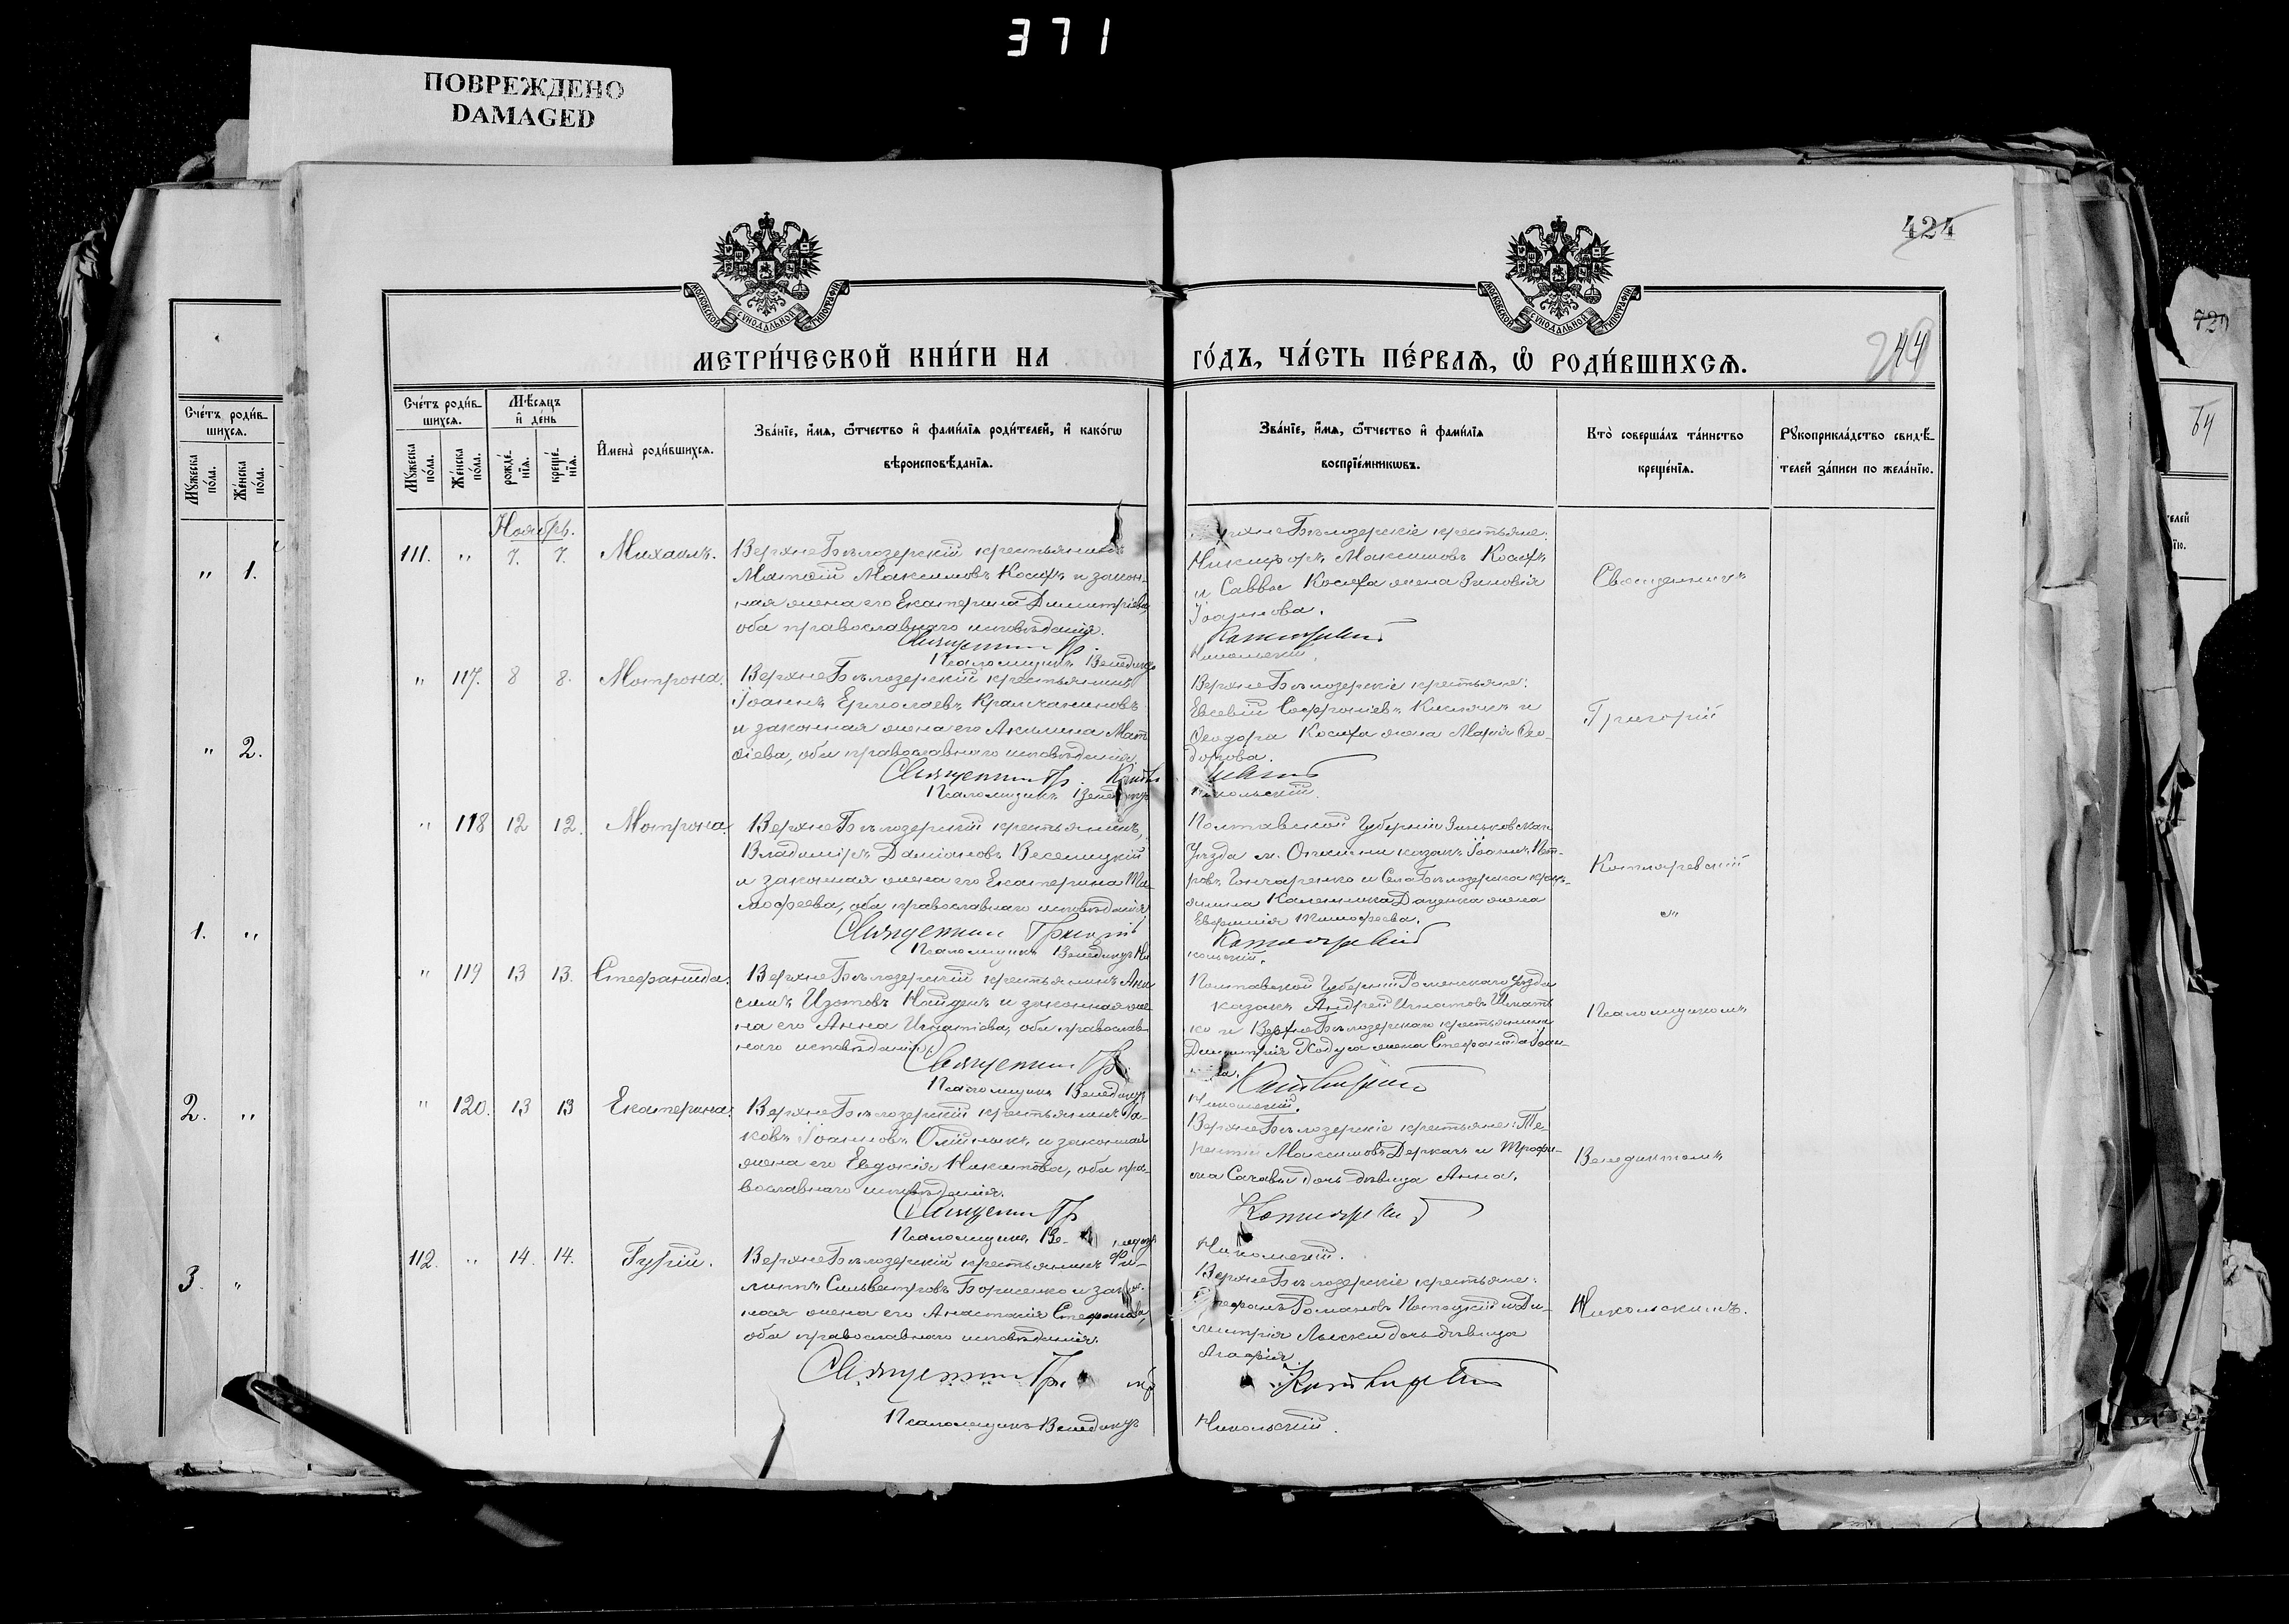 371
ПОВРЕЖДЕНО
DAMAGED
424
44
МЕТРИ́ЧЕСКОЙ КНИ́ГИ НА
ГО́ДЪ, ЧА́СТЬ ПЕ́РВАЯ, Ѡ РОДИ́ВШИХСЯ.
МОСКОВСКОЙ СѴНОДАЛЬНОЙ ТИПОГРАФІИ
МОСКОВСКОЙ СѴНОДАЛЬНОЙ ТИПОГРАФІИ
Сче́тъ роди́вшихся.
Мꙋ́жеска по́ла.
Же́нска по́ла.
Мѣ́сяцъ и҆ де́нь
рожде́нїя.
креще́нїя.
И҆мена̀ роди́вшихся.
Зва́нїе, и҆́мя, ѻ҆́тчество и҆ фами́лїя роди́телей, и҆ како́гѡ
вѣроисповѣ́данїя.
Зва́нїе, и҆́мя, ѻ҆́тчество и҆ фами́лїя
воспрїе́мникѡвъ.
Кто̀ соверша́лъ та́инство
креще́нїя.
Рꙋкоприкла́дство свидѣ́-
телей за́писи по жела́нїю.
Ноябрь.
111. " 7. 7. Михаилъ.
ВерхнеБѣлозерскій крестьянинъ
Матѳій Максимовъ Косяхъ и закон-
ная жена его Екатерина Димитріева,
оба православнаго исповѣданія.
Священникъ Гр.
Псаломщикъ Венедиктъ
ВерхнеБѣлозерскіе крестьяне:
Никифоръ Максимовъ Косяхъ
и Саввы Косяха жена Зиновія
Іоаннова.
Котляревскій
Никольскій.
Священникъ
" 117. 8 8. Матрона.
ВерхнеБѣлозерскій крестьянинъ
Іоаннъ Ермолаевъ
и законная жена его Акилина Мат-
ѳіева, оба православнаго исповѣданія.
Священникъ Гр. Котля
Псаломщикъ Венедиктъ
ВерхнеБѣлозерскіе крестьяне:
Евсевій Софроніевъ Кислякъ и
Ѳеодора Косяха жена Марія Ѳео-
дорова.
Никольскій.
Григорій
" 118 12 12. Матрона.
ВерхнеБѣлозерскій крестьянинъ,
Владиміръ Даміановъ Веселицкій
и законная жена его Екатерина Ти-
моѳеева, оба православнаго исповѣданія
Священникъ Григорій
Псаломщикъ Венедиктъ Ни
Полтавской Губерніи Зиньковскаго
Уѣзда м. Опошни казакъ Іоаннъ Пет-
ровъ Гончаренко и Села Бѣлозерка кресть-
янина Калениика Даценка жена
Евфимія Тимоѳеева.
Котляревскій
кольскій.
Котляревскій
"
" 119 13 13. Стефанида.
ВерхнеБѣлозерскій крестьянинъ Ани
симъ Изотовъ Найденъ и законная же-
на его Анна Игнатіева, оба православ-
наго исповѣданія.
Священникъ Гр.
Псаломщикъ Венедиктъ
Полтавской Губерніи Роменскаго Уѣзда
казакъ Андрей Игнатовъ Шмать
ко и ВерхнеБѣлозерскаго крестьянина
Димитрія Кодуса жена Стефанида Іоан-
Котляревскій
Никольскій.
Псаломщикомъ
" 120. 13 13 Екатерина.
ВерхнеБѣлозерскій крестьянинъ Іа-
ковъ Іоанновъ Олійныкъ и законная
жена его Евдокія Никитова, оба пра-
вославнаго исповѣданія.
Священникъ Гр
Псаломщикъ Ве-
ВерхнеБѣлозерскіе крестьяне: Те-
рентій Максимовъ Деркачъ и Трофи-
ма Сачавы дочь дѣвица Анна.
Котляревскій
Никольскій.
Венедиктомъ
112. " 14. 14. Гурій.
ВерхнеБѣлозерскій крестьянинъ Фи-
липпъ Сильвестровъ Борисенко и закон-
ная жена его Анастасія Стефанова,
оба православнаго исповѣданія.
Священникъ Гр.
Псаломщикъ Венедиктъ
ВерхнеБѣлозерскіе крестьяне:
Стефанъ Романовъ Потоцкій и Ди-
митрія Лыски дочь дѣвица
Агафія.
Котляревскій
Никольскій.
Никольскимъ.
Сче́тъ роди́вшихся.
Мꙋ́жеска по́ла.
Же́нска по́ла.
" 1.
" 2.
1. "
2. "
3. "
720
64